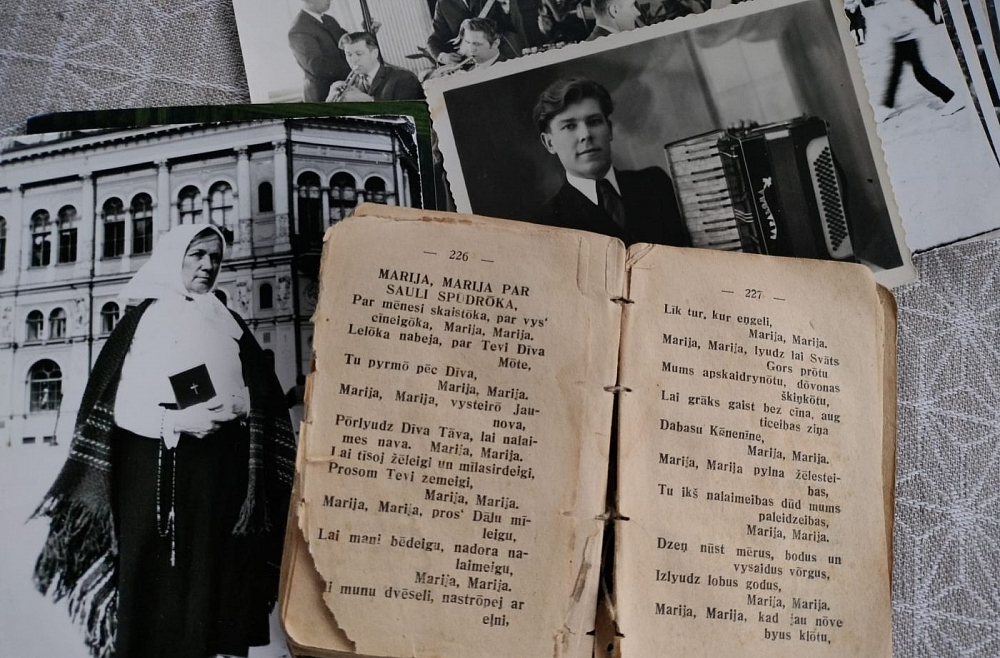 — 226 —
MARIJA, MARIJA PAR
SAULI SPUDRŌKA,
Par mēnesi skaistōka, par vys'
cīneigōka, Marija, Marija.
Lelōka nabeja, par Tevi Dīva
Mōte,
Tu pyrmō pēc Dīva,
Marija, Marija.
Marija, Marija, vysteirō Jau-
nova,
Pōrlyudz Dīva Tāva, lai nalai-
mes nava. Marija, Marija.
Lai tīsoj žēleigi un mīlasirdeigi,
Prosom Tevi zemeigi,
Marija, Marija.
Marija, Marija, pros' Dāļu mī-
leigu,
Lai mani bēdeigu, nadora na-
laimeigu,
Marija, Marija.
munu dvēseli, nastrōpej ar
eļni,
— 227 —
Līk tur, kur eņgeli,
Marija, Marija.
Marija, Marija, lyudz lai Svāts
Gors prōtu
Mums apskaidrynōtu, dōvonas
škiņkōtu,
Lai grāks gaist bez cīņa, aug
ticeibas ziņa
Dabasu Kēnenīne,
Marija, Marija.
Marija, Marija pylna žēlestei-
bas,
Tu ikš nalaimeibas dūd mums
paleidzeibas,
Marija, Marija.
Dzeņ nūst mērus, bodus un
vysaidus vōrgus,
Izlyudz lobus godus,
Marija, Marija.
Marija, Marija, kad jau nōve
byus klōtu,